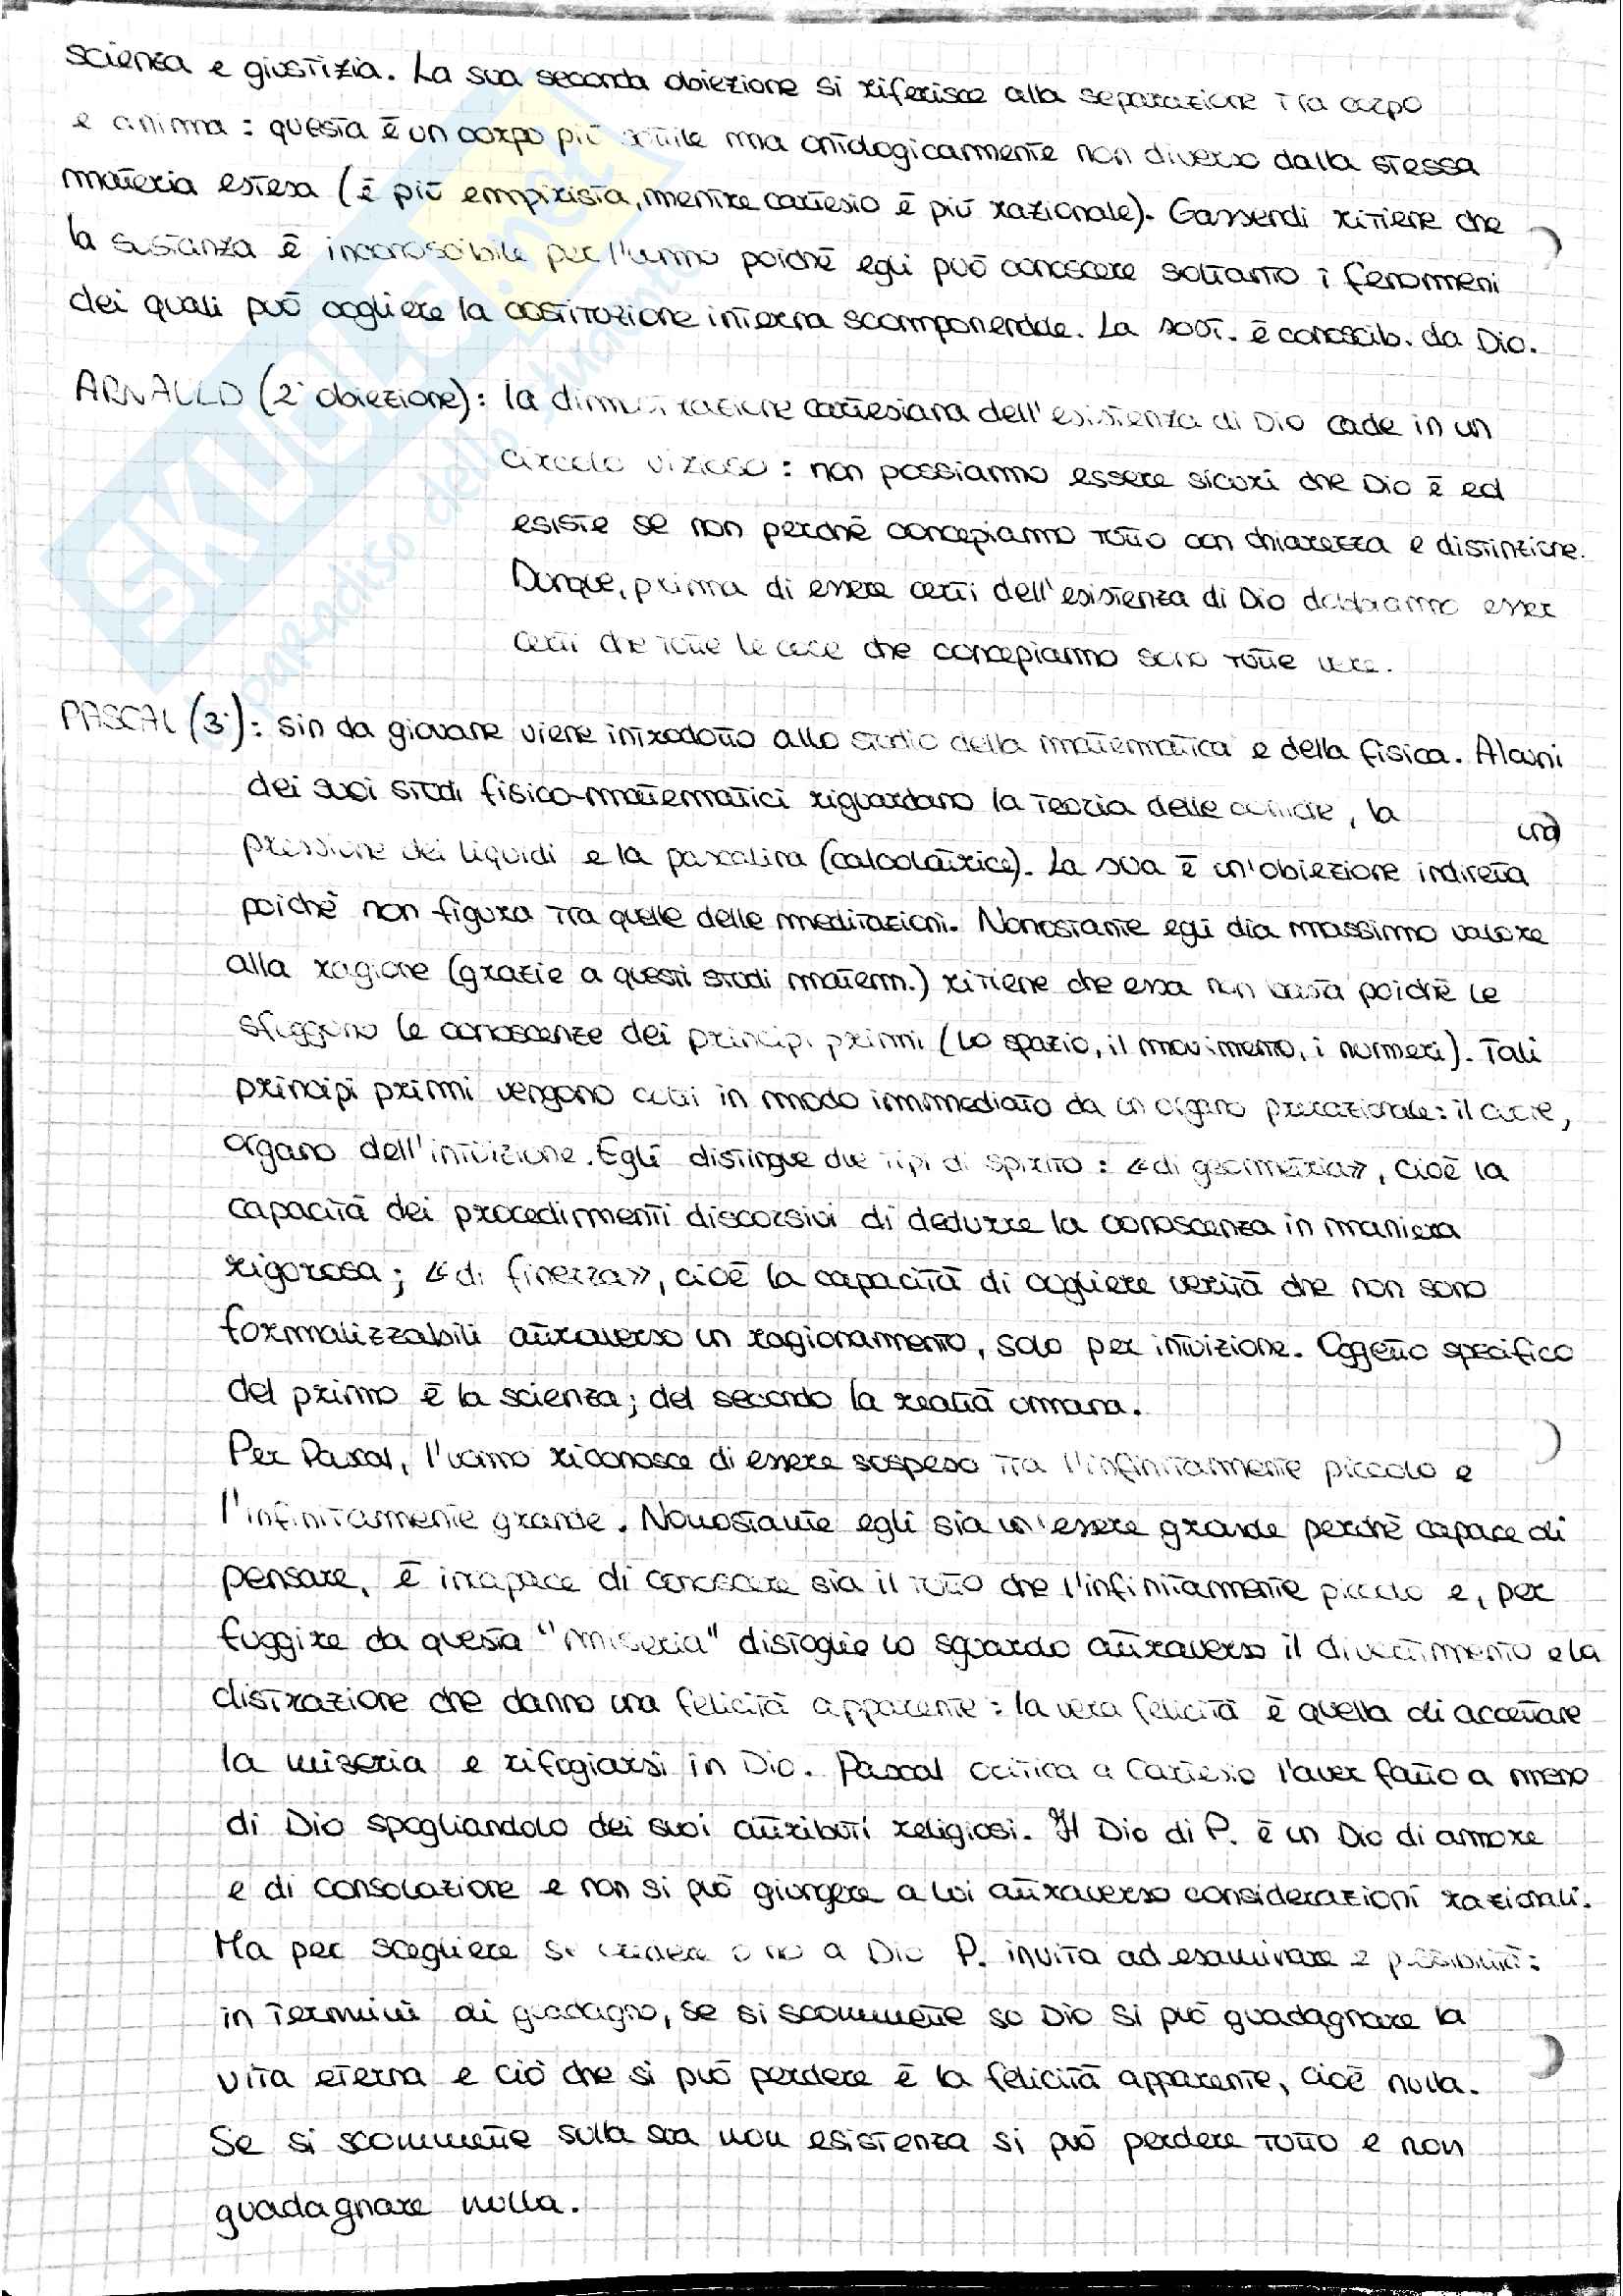 scienza e giustizia. La sua seconda obiezione si riferisce alla separazione tra corpo
e anima: questa è un corpo più sottile ma ontologicamente non diverso dalla stessa
materia estesa (è più empirista, mentre cartesio è più razionale). Gassendi ritiene che
la sustanza è inconoscibile per l'uomo poiché egli può conoscere soltanto i fenomeni
dei quali può cogliere la costituzione interna scomponendole. La sost. è conoscib. da Dio.
ARNAULD (2° obiezione): la dimostrazione cartesiana dell'esistenza di Dio cade in un
circolo vizioso: non possiamo essere sicuri che Dio è ed
esiste se non perché concepiamo tutto con chiarezza e distinzione.
Dunque, prima di essere certi dell'esistenza di Dio dobbiamo esser
certi che tutte le cose che concepiamo sono tutte vere.
PASCAL (3°): sin da giovane viene introdotto allo studio della matematica e della fisica. Alcuni
dei suoi studi fisico-matematici riguardano la teoria delle coniche, la
pressione dei liquidi e la pascalina (calcolatrice). La sua è un'obiezione indiretta
poiché non figura tra quelle delle meditazioni. Nonostante egli dia massimo valore
alla ragione (grazie a questi studi matem.) ritiene che essa non basta poiché le
sfuggono le conoscenze dei principi primi (lo spazio, il movimento, i numeri). Tali
principi primi vengono colti in modo immmediato da un organo prerazionale: il cuore,
organo dell'intuizione. Egli distingue due tipi di spirito: «di geometria», cioè la
capacità dei procedimenti discorsivi di dedurre la conoscenza in maniera
rigorosa; «di finezza», cioè la capacità di cogliere verità che non sono
formalizzabili attraverso un ragionamento, solo per intuizione. Oggetto specifico
del primo è la scienza; del secondo la realtà umana.
Per Pascal, l'uomo riconosce di essere sospeso tra l'infinitamente piccolo e
l'infinitamente grande. Nonostante egli sia un'essere grande perché capace di
pensare, è incapace di conoscere sia il tutto che l'infinitamente piccolo e, per
fuggire da questa "miseria" distoglie lo sguardo attraverso il divertimento e la
distrazione che danno una felicità apparente: la vera felicità è quella di accettare
la miseria e rifugiarsi in Dio. Pascal critica a Cartesio l'aver fatto a meno
di Dio spogliandolo dei suoi attributi religiosi. Il Dio di P. è un Dio di amore
e di consolazione e non si può giungere a lui attraverso considerazioni razionali.
Ma per scegliere se credere o no a Dio P. invita ad esaminare 2 possibilità:
in termini di guadagno, se si scommette su Dio si può guadagnare la
vita eterna e ciò che si può perdere è la felicità apparente, cioè nulla.
Se si scommette sulla sua non esistenza si può perdere tutto e non
guadagnare nulla.
SKUOLA.net
il paradiso dello studente